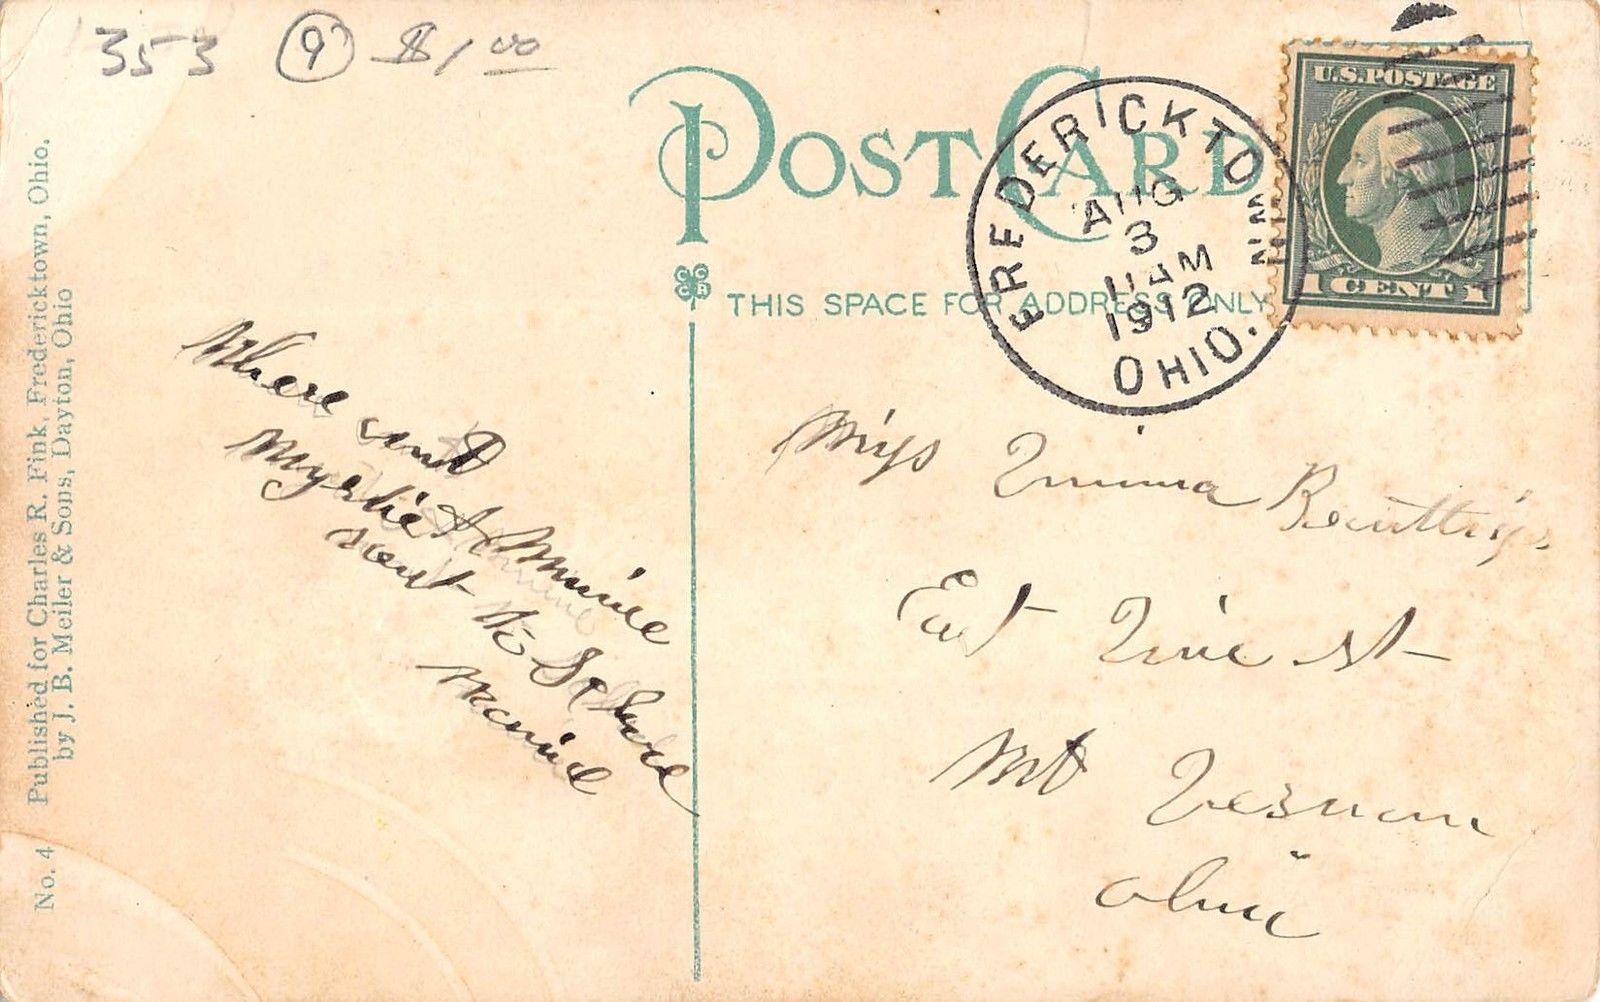 353 9 $1.00
POST CARD
THIS SPACE FOR ADDRESS ONLY
FREDERICKTOWN
AUG
3
11 AM
1912
OHIO.
U.S. POSTAGE
1 CENT 1
No. 4 Published for Charles R. Fink, Fredericktown, Ohio,
by J. B. Meiler & Sons, Dayton, Ohio
Where
Myrtie & Minnie
went to School
Miss Emma
East Vine st
Mt Vernon
Ohio